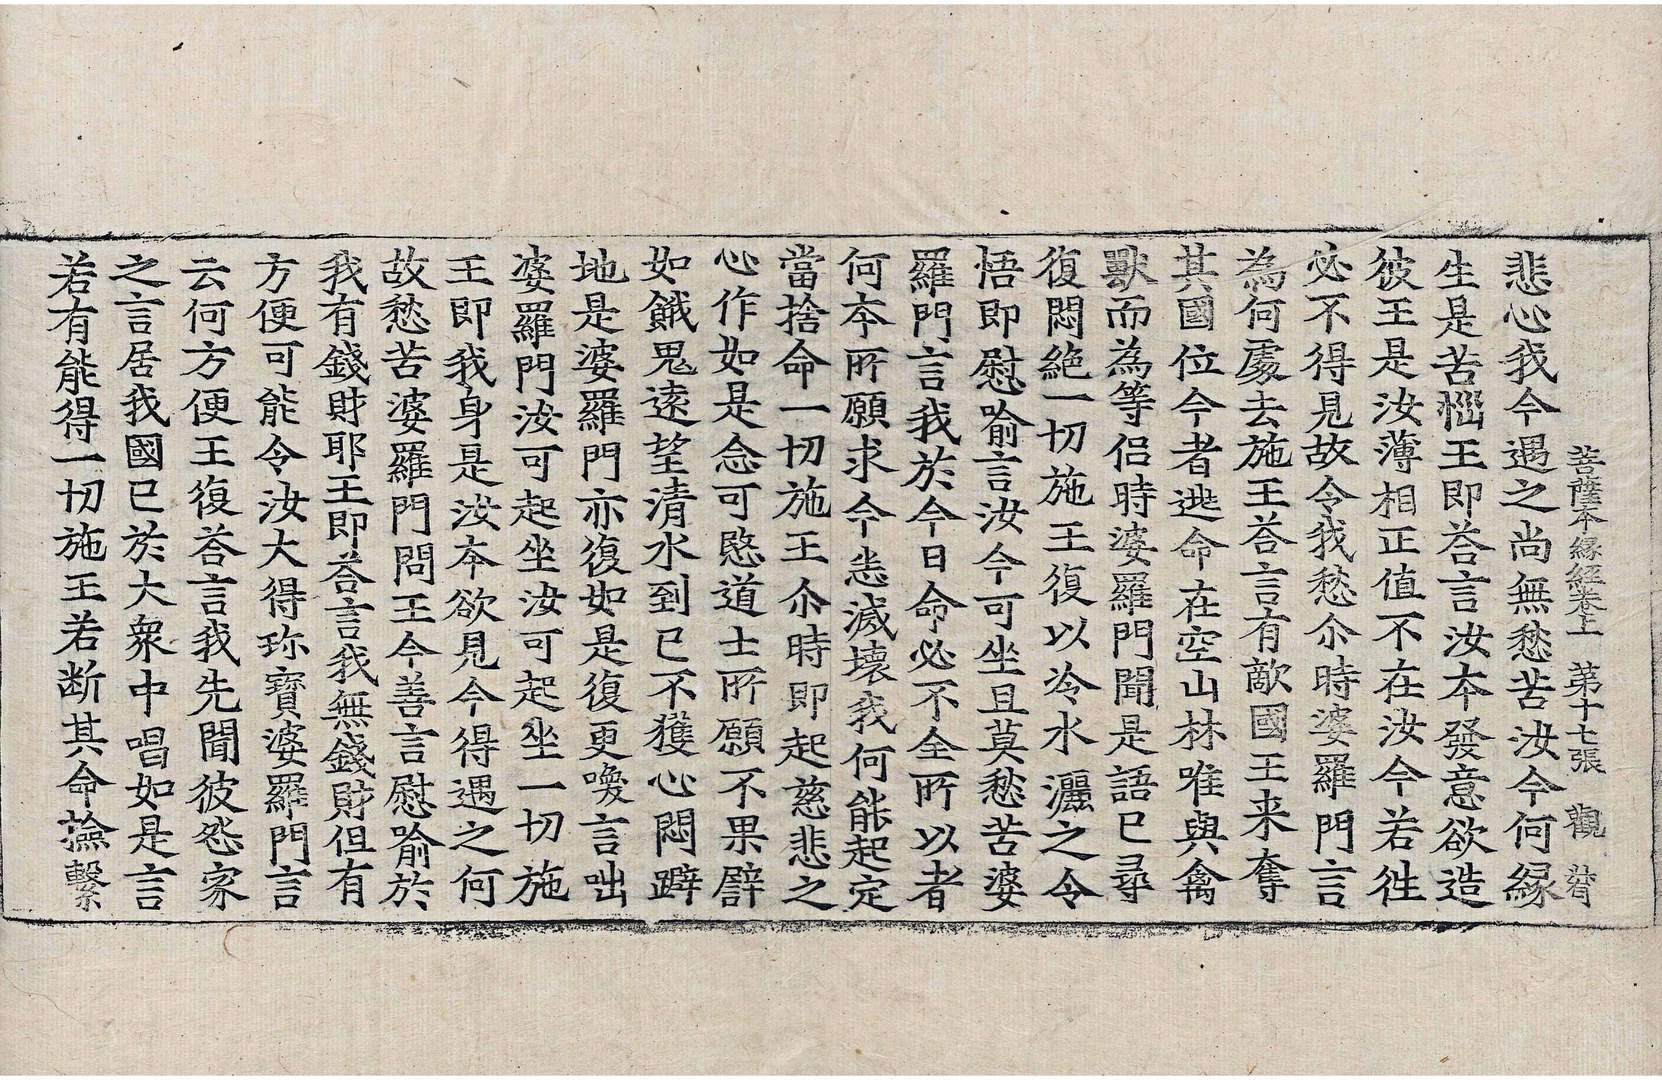 菩薩本縁経卷上 第十七張 觀
悲心我今遇之尚無愁苦汝今何縁
生是苦惱王即荅言汝夲發意欲造
彼王是汝薄相正值不在汝今若徃
必不得見故令我愁尒時婆羅門言
為何處去施王荅言有敵國王来奪
其國位今者逃命在空山林唯與禽
獸而為等侶時婆羅門聞是語已尋
復悶絶一切施王復以冷水灑之令
悟即慰喻言汝今可坐且莫愁苦婆
羅門言我於今日命必不全所以者
何夲所願求今悉滅壞我何能起定
當捨命一切施王尒時即起慈悲之
心作如是念可愍道士所願不果譬
如餓鬼遠望清水到已不獲心悶躃
地是婆羅門亦復如是復更喚言咄
婆羅門汝可起坐汝可起坐一切施
王即我身是汝夲欲見今得遇之何
故愁苦婆羅門問王今善言慰喻於
我有錢財耶王即荅言我無錢財但有
方便可能令汝大得珎寳婆羅門言
云何方便王復荅言我先聞彼怨家
之言居我國已於大衆中唱如是言
若有能得一切施王若断其命撿繫